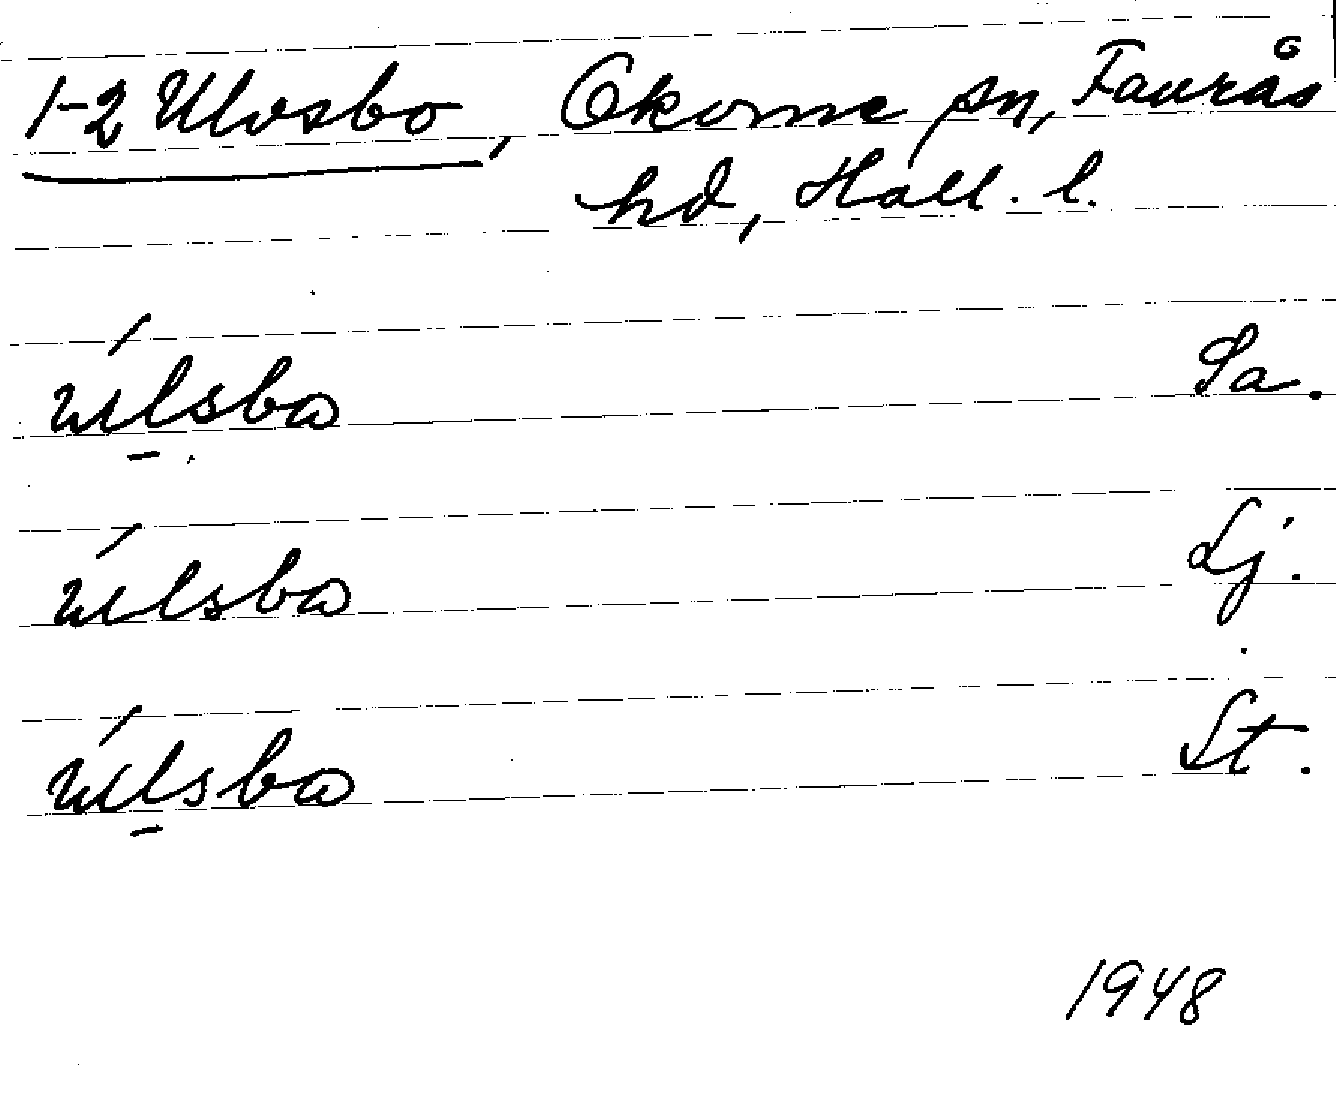 1-2 Ulvsbo, Okome sn, Faurås
hd, Hall. l.
úlsba Sa.
úlsba Lj.
úlsba St.
1948